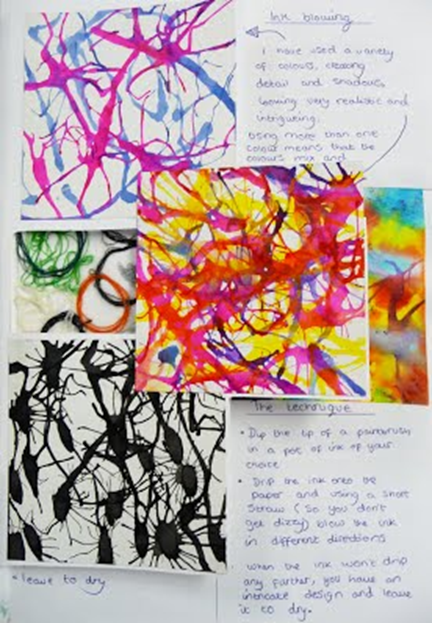 Ink blowing
I have used a variety
of colours, creating
detail and shadows,
looking very realistic and
intriguing.
Using more than one
colour means that the
colours mix and
The technique
• Dip the tip of a paintbrush
in a pot of ink of your
choice
• Drip the ink onto the
paper and using a short
straw (so you don't
get dizzy) blow the ink
in different directions
when the ink won't drip
any further, you have an
intricate design and leave
it to dry.
• leave to dry